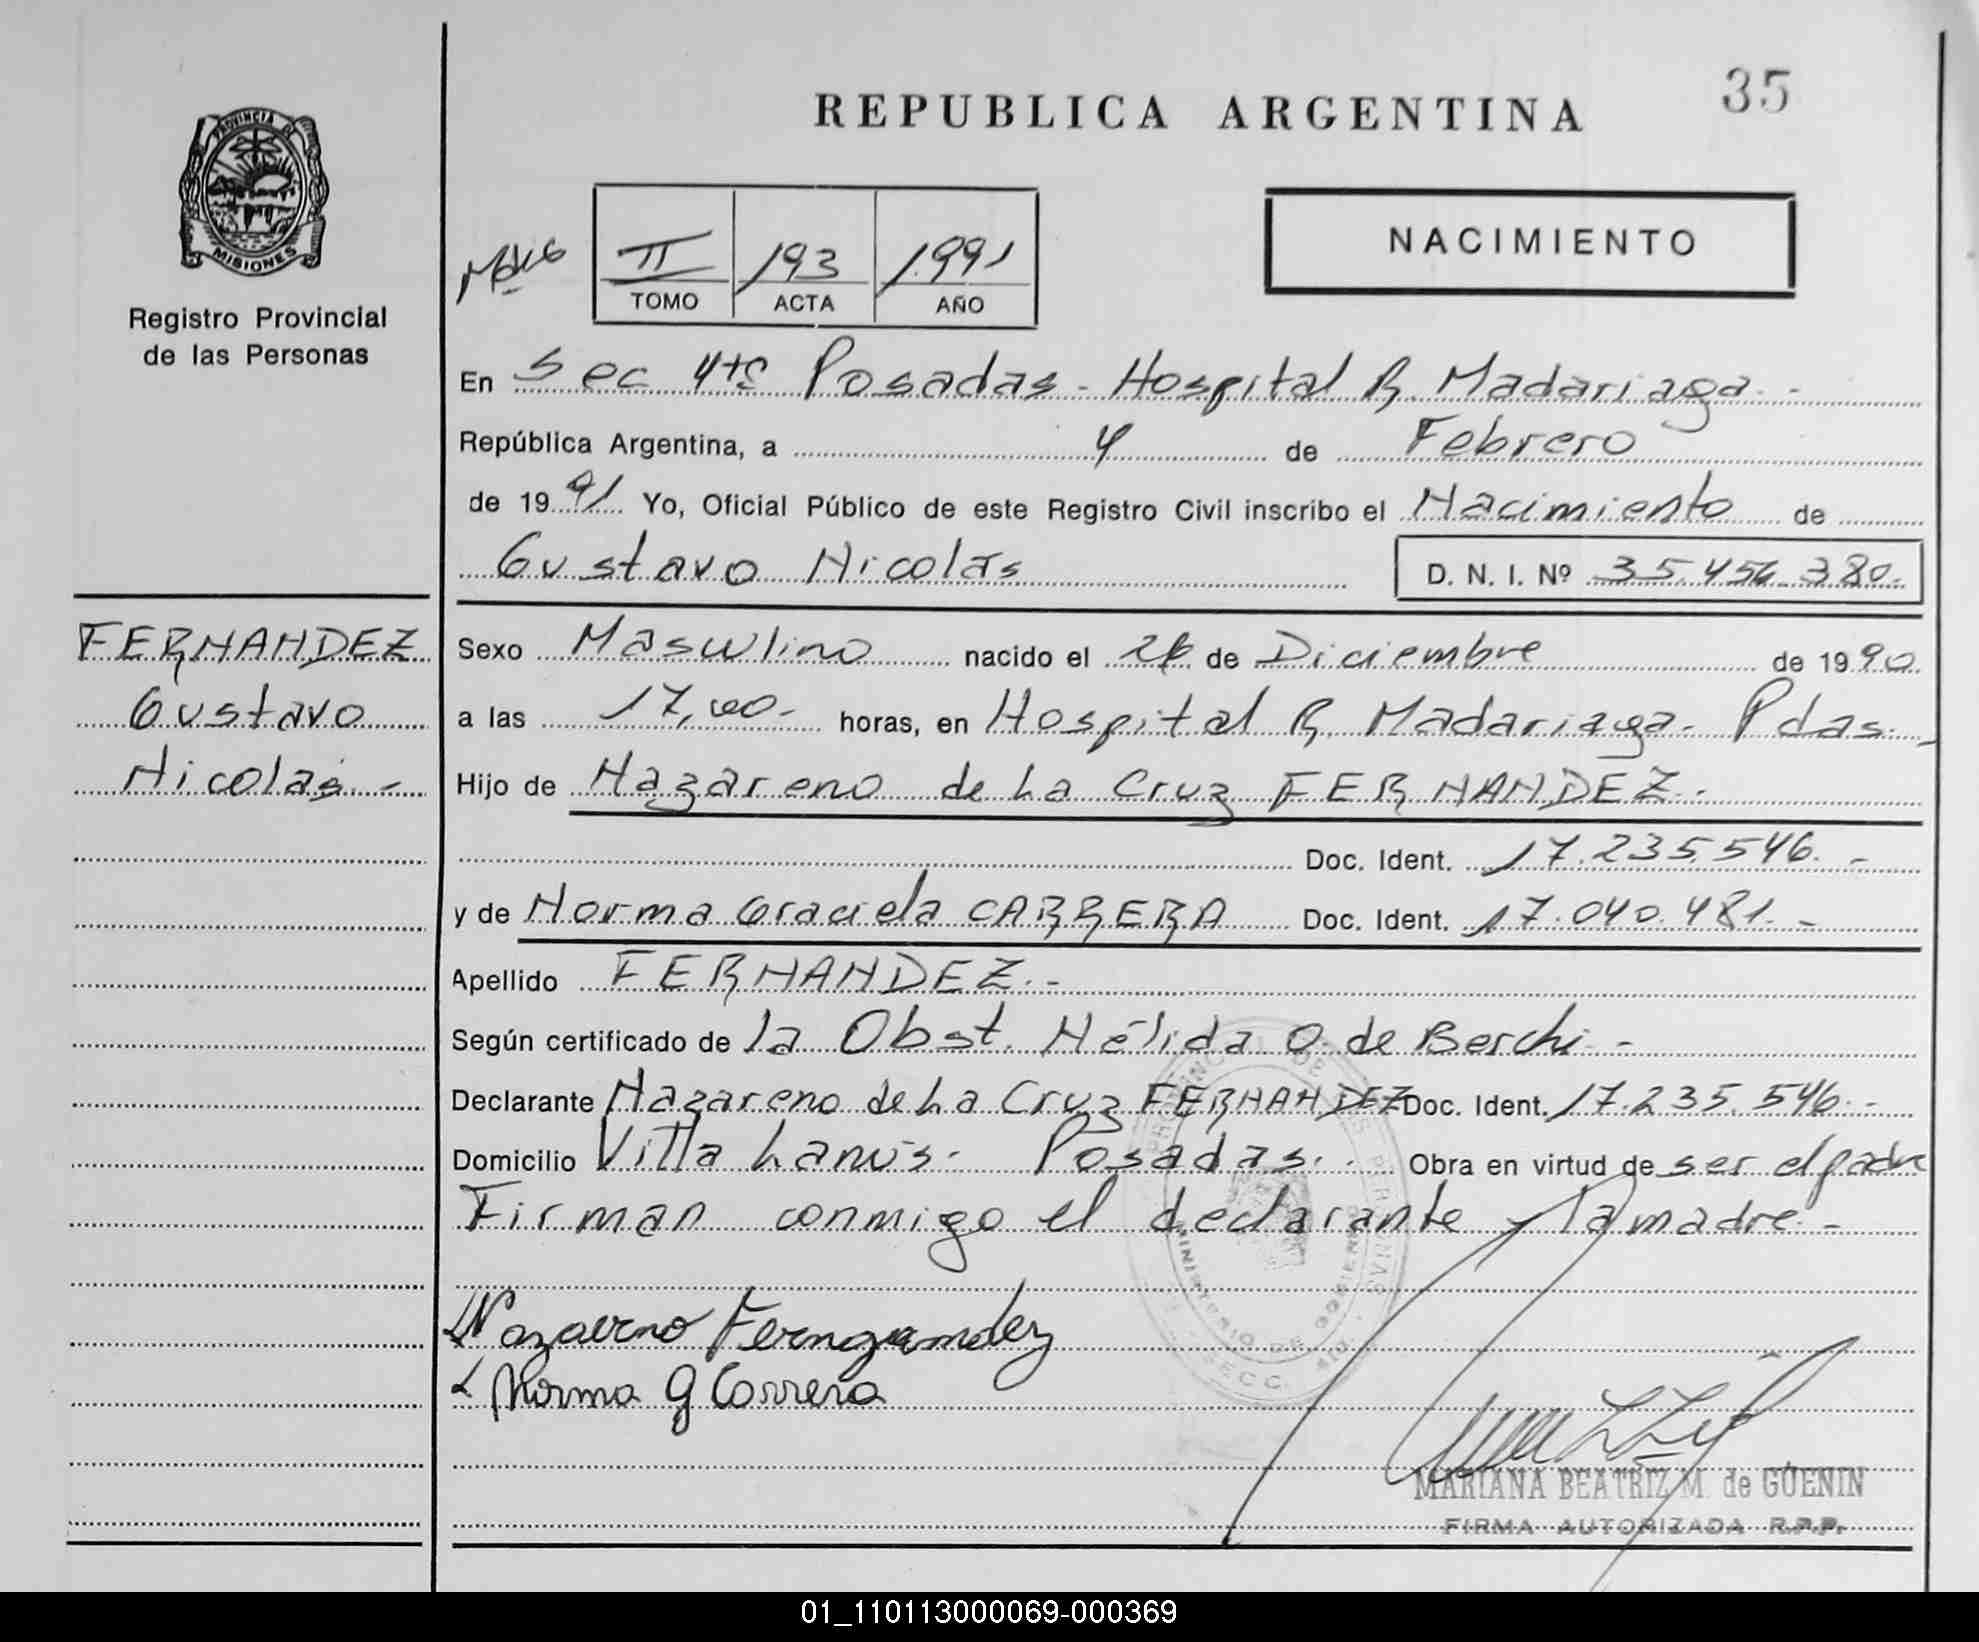 35
REPUBLICA ARGENTINA
PROVINCIA DE
MISIONES
Registro Provincial
de las Personas
II 193 1991
TOMO ACTA AÑO
NACIMIENTO
En Sec 4ta Posadas - Hospital R. Madariaga. -
República Argentina, a 4 de Febrero
de 1991 Yo, Oficial Público de este Registro Civil inscribo el Nacimiento de
Gustavo Nicolás D. N. I. Nº 35.456.380.
FERNANDEZ
Gustavo
Nicolás. -
Sexo Masculino nacido el de Diciembre de 1990.
a las 17,00.- horas, en Hospital R. Madariaga. Pdas. -
Hijo de Nazareno de La Cruz FERNANDEZ.
Doc. Ident. 17.235.546. -
y de Norma Graciela CARRERA Doc. Ident. 17.040.481. -
Apellido FERNANDEZ. -
Según certificado de la Obst. Nélida O. de Berchi -
Declarante Nazareno de La Cruz FERNANDEZ Doc. Ident. 17.235.546. -
Domicilio Villa Lanús. Posadas. Obra en virtud de ser el padre
Firman conmigo el declarante y la madre. -
Nazareno Fernandez
Norma G Carrera
MINISTERIO DE GOBIERNO
MARIANA BEATRIZ M. de GÜENIN
FIRMA AUTORIZADA R.P.P.
01_110113000069-000369